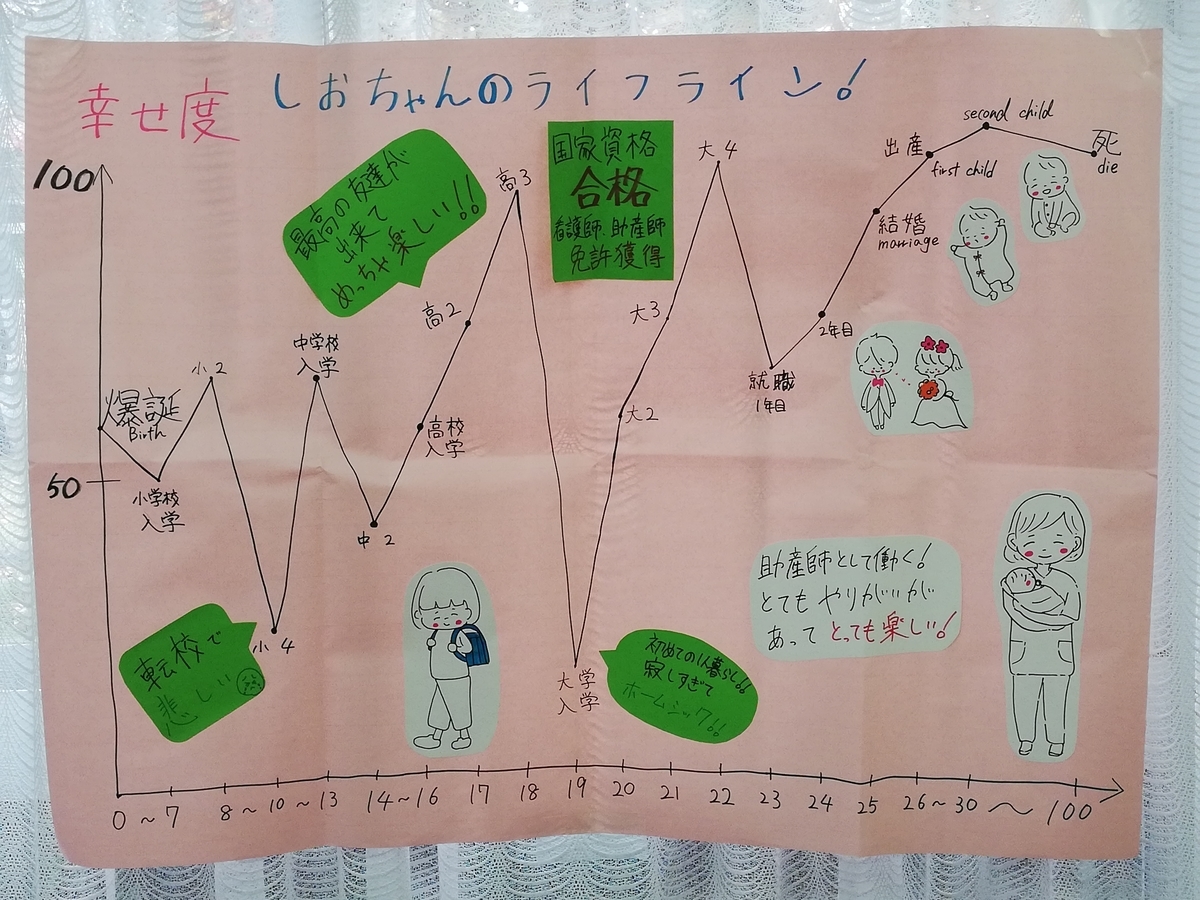 幸せ度
しおちゃんのライフライン!
100
50
爆誕
Birth
小学校
入学
小2
小4
転校で
悲しい
中学校
入学
中2
高校
入学
高2
高3
最高の友達が
出来て
めっちゃ楽しい!!
大学
入学
初めての1人暮らし!!
寂しすぎて
ホームシック!!
大2
大3
大4
国家資格
合格
看護師、助産師
免許獲得
就職
1年目
2年目
結婚
marriage
出産
first child
second child
死
die
助産師として働く!
とてもやりがいが
あってとっても楽しい!
0~7 8~10~13 14~16 17 18 19 20 21 22 23 24 25 26~30~100